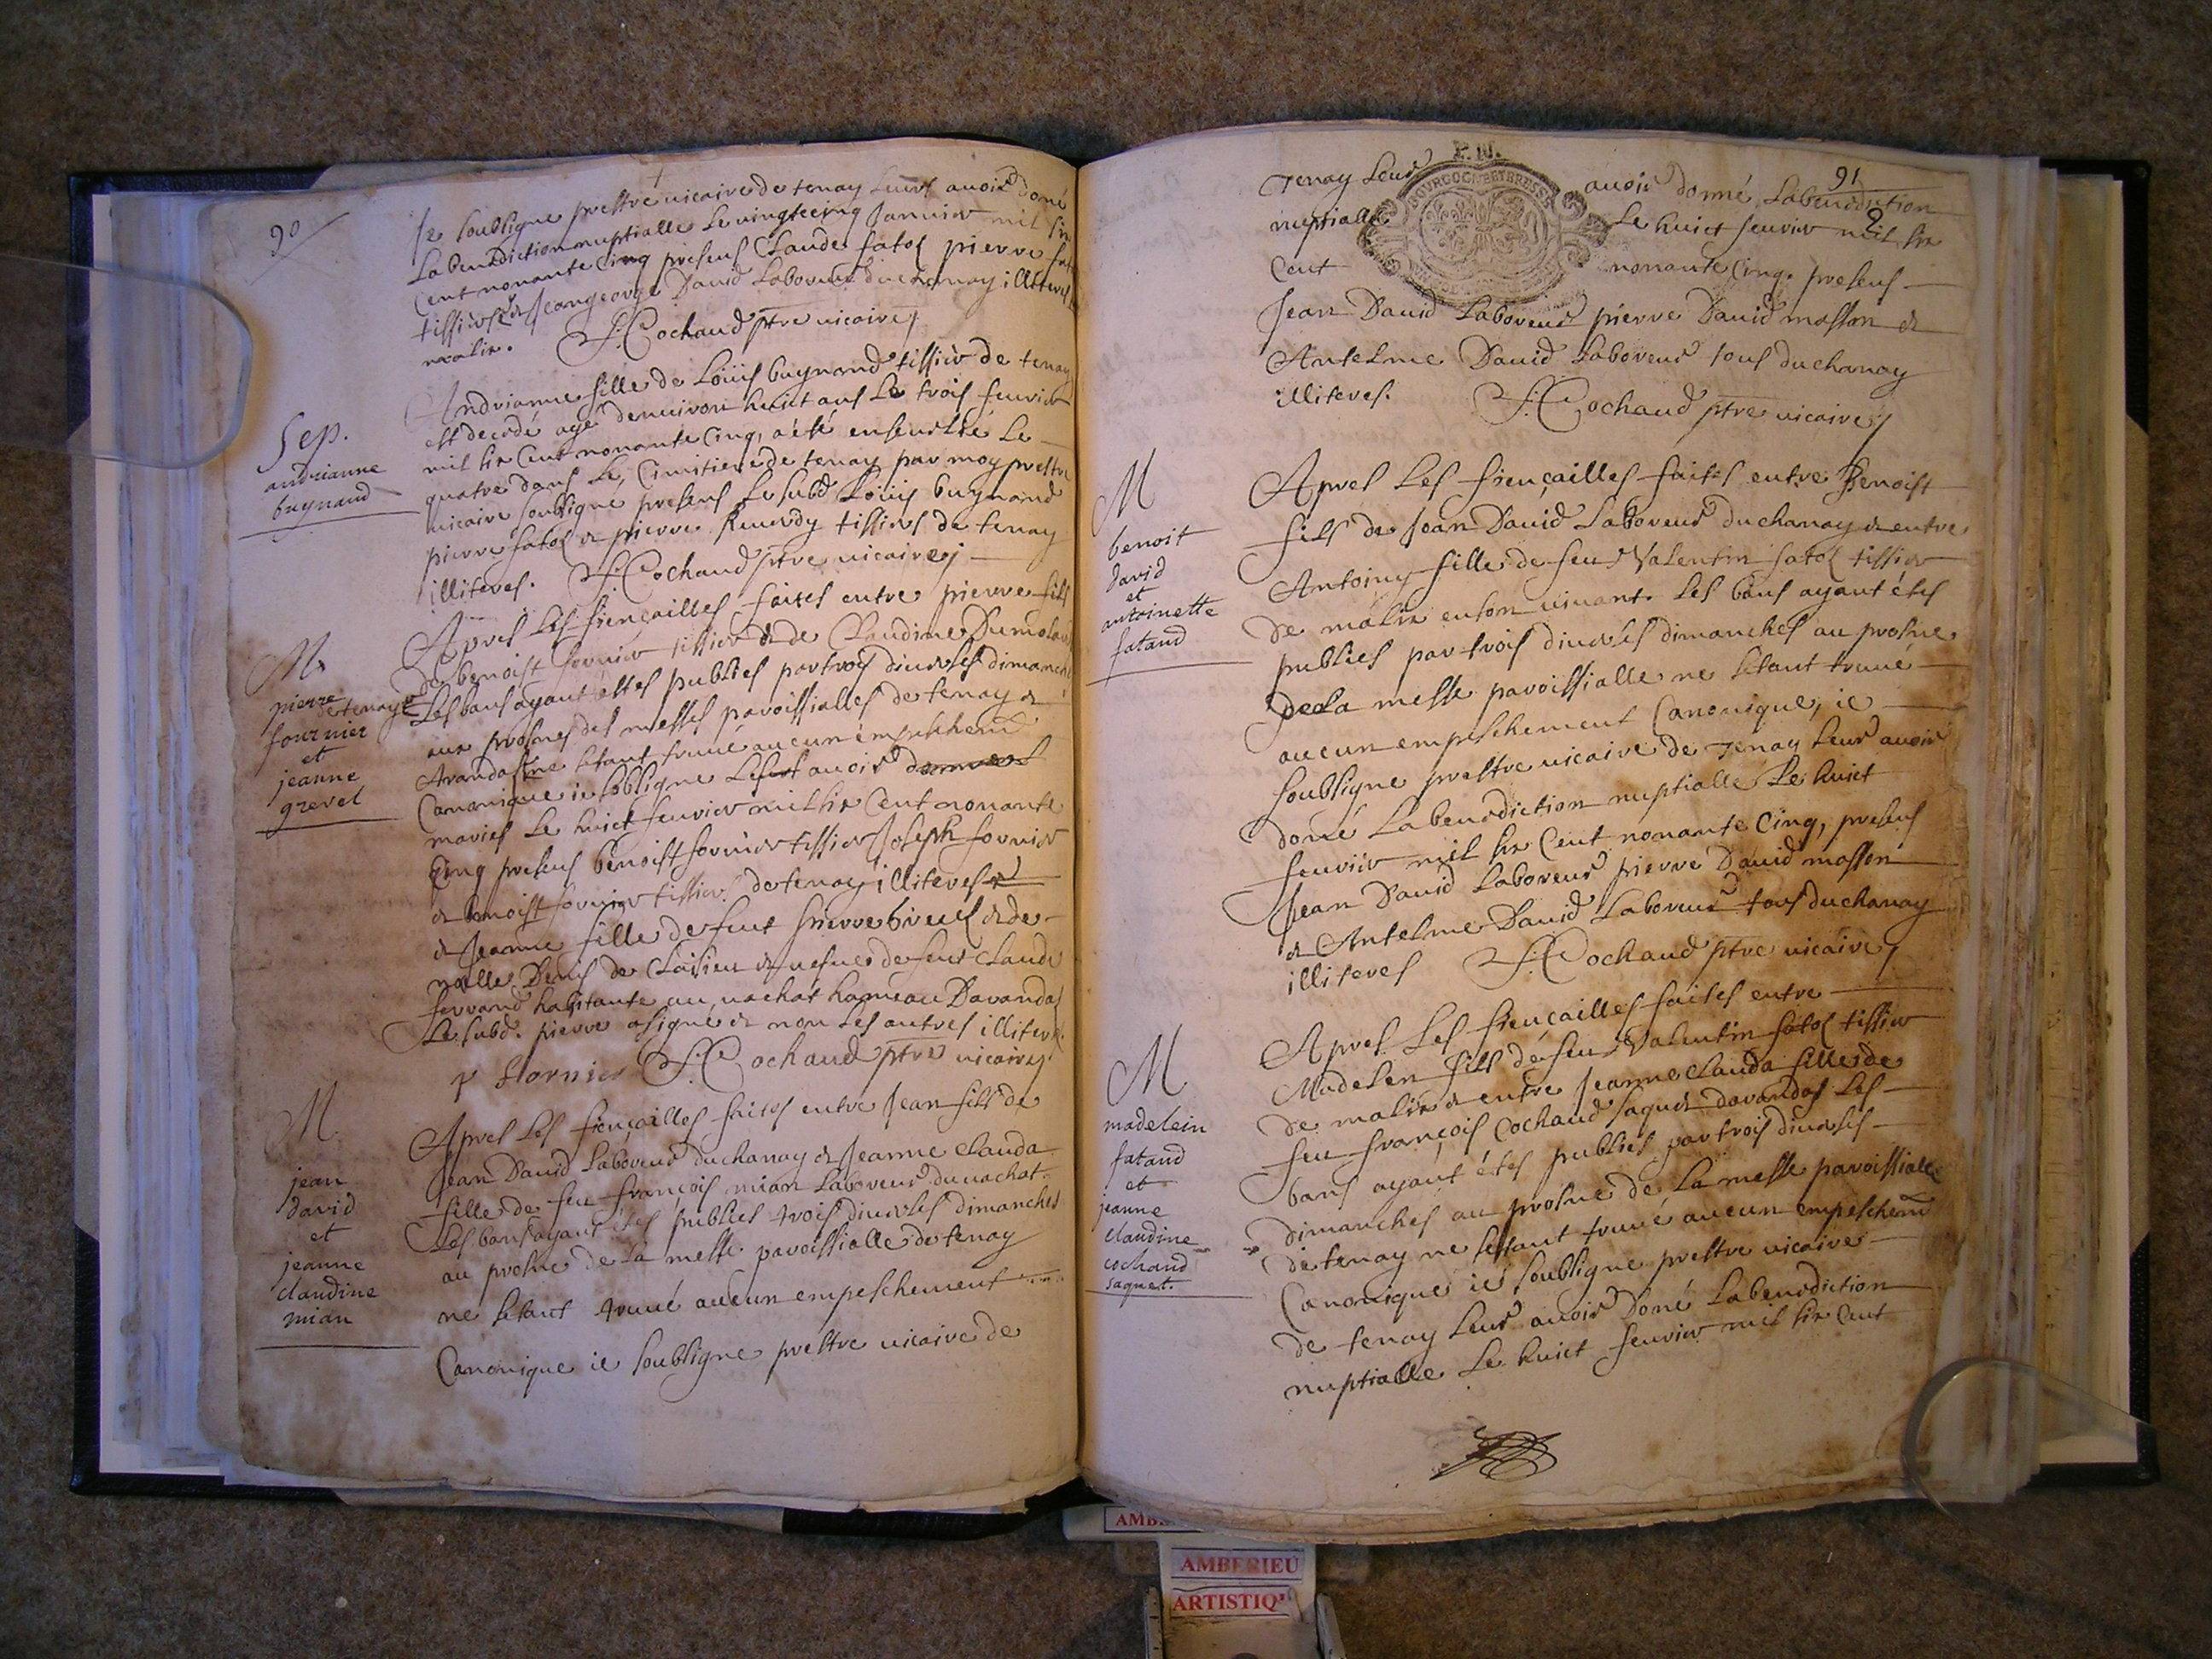 90
Je soubsigne prestre vicaire de tenay leurs avoir doné
La benediction nuptialle Le vingtecinq Janvier mil six
Cent nonante Cinq presens Claude fatod pierre
tissiers & Jeangeorge David Laboreur du chanay illiteres
malix. J: Cochaud ptre vicaire
Sep.
andrianne
buynand
Andrianne fille de Loüis buynand tissier de tenay
est decedé agé denviron huict ans Le trois fevrier
mil six Cent nonante Cinq, a été ensevelie Le
quatre dans Le Cimitiere de tenay par moy prestre
vicaire soubsigné presens Le subd Loüis buynand
pierre fatod & pierre Reverdy tissiers de tenay
illiteres. J: Cochaud ptre vicaire
M
pierre
fournier
et
jeanne
grevet
Apres Les fiençailles faites entre pierre fils
de benoist fornier tissier & de Claudine Dumolard
de tenay & Les bans ayant éstes publies par trois diverses dimanches
aux prosnes des messes paroissialles de tenay &
Arandas ne sétant truvé aucun empeschemt
Canonique ie sobsigne Les avoir
maries Le huict fevrier mil six Cent nonante
Cinq presens benoist fornier tissier Joseph fornier
& benoist fornier tissiers de tenay illiteres &
& Jeanne fille de feut pierre & de
Denis de Cleisieu & vefve de feut Claude
ferrand habitante au vachat hameau Darandas
Le subd. pierre a signé & non Les autres illiteres.
p fornier J: Cochaud ptre vicaire
M
jean
david
et
jeanne
claudine
mian
Apres Les fiençailles faites entre Jean fils de
Jean David Laboreur du chanay & Jeanne Clauda
fille de feu françois mian Laboreur du vachat
Les bans ayant étes publies trois diverses dimanches
au prosne de La messe paroissialle de tenay
ne sétant truvé aucun empeschement
Canonique ie soubsigne prestre vicaire de
91
P. N.
BOURGOGNE ET BRESSE
Tenay Leur avoir donné La benediction
nuptialle Le huict fevrier mil six
Cent nonante Cinq. presens
Jean David Laboreur pierre David masson &
Antelme David Laboreur tous du chanay
illiteres. J: Cochaud ptre vicaire
M
benoit
david
et
antoinette
fatand
Apres Les fiençailles faites entre Benoist
fils de Jean David Laboreur du chanay & entre
Antoiny fille de feu Valentin fatod tissier
de malix en son vivant. Les bans ayant étes
publies par trois diverses dimanches au prosne
de La messe paroissialle ne sétant truvé
aucun empeschement Canonique, ie
soubsigne prestre vicaire de Tenay Leur avoir
doné La benediction nuptialle Le huict
fevrier mil six Cent nonante Cinq, presens
Jean David Laboreur pierre David masson
& Antelme David Laboreur tous du chanay
illiteres J: Cochaud ptre vicaire
M
madelein
fatand
et
jeanne
claudine
cochand
saquet.
Apres Les fiençailles faites entre
Madelen fils de feu Valentin fatod tissier
de malix & entre Jeanne Clauda fille de
feu françois Cochaud saquet darandas Les
bans ayant étes publies par trois diverses
dimanches au prosne de La messe paroissialle
de tenay ne sestant truvé aucun empeschemt
Canonique ie soubsigne prestre vicaire
de tenay Leur avoir Doné La benediction
nuptialle Le huict fevrier mil six Cent
AMBERIEU
ARTISTIQ